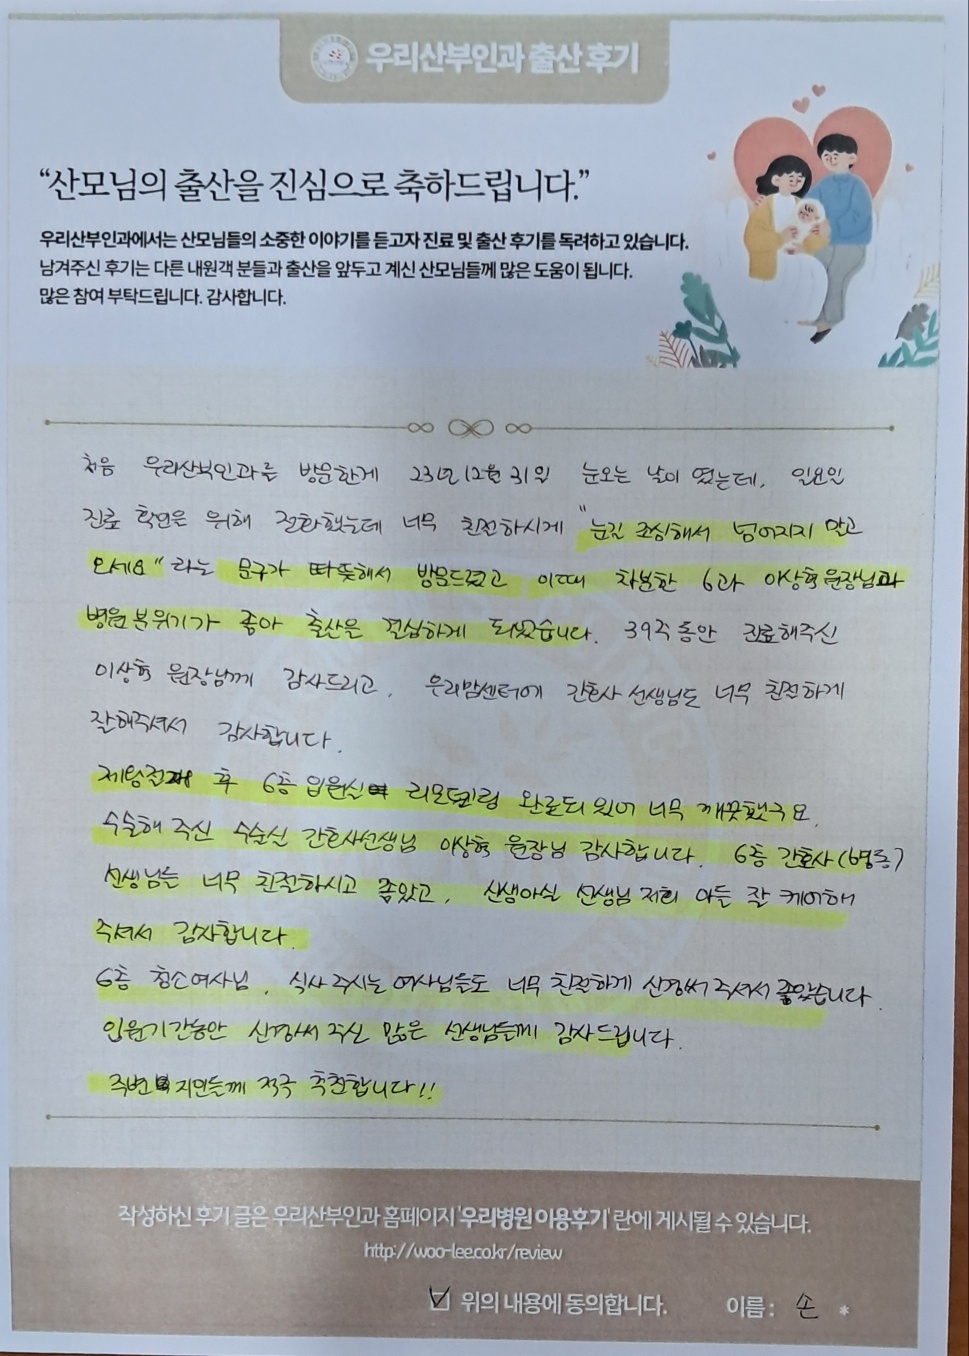 우리산부인과 출산 후기
“산모님의 출산을 진심으로 축하드립니다.”
우리산부인과에서는 산모님들의 소중한 이야기를 듣고자 진료 및 출산 후기를 독려하고 있습니다.
남겨주신 후기는 다른 내원객 분들과 출산을 앞두고 계신 산모님들께 많은 도움이 됩니다.
많은 참여 부탁드립니다. 감사합니다.
처음 우리산부인과를 방문한게 23년 12월 31일 눈오는 날이 였는데, 일요일
진료 확인을 위해 전화했는데 너무 친절하시게 "눈길 조심해서 넘어지지 말고
오세요" 라는 문구가 따뜻해서 방문드렸고 이때 차분한 6과 이상혁 원장님과
병원 분위기가 좋아 출산은 결심하게 되었습니다. 39주 동안 진료해주신
이상혁 원장님께 감사드리고, 우리맘센터에 간호사 선생님도 너무 친절하게
잘해주셔서 감사합니다.
제왕절개 후 6층 입원실 리모델링 완료되 있어 너무 깨끗했구요.
수술해 주신 수술실 간호사선생님 이상혁 원장님 감사합니다. 6층 간호사(병동)
선생님들 너무 친절하시고 좋았고, 신생아실 선생님 저희 아들 잘 케어해
주셔서 감사합니다.
6층 청소여사님, 식사 주시는 여사님들도 너무 친절하게 신경써 주셔서 좋았습니다.
입원기간동안 신경써 주신 많은 선생님들께 감사드립니다.
주변 지인들께 적극 추천합니다!!
작성하신 후기 글은 우리산부인과 홈페이지 '우리병원 이용후기' 란에 게시될 수 있습니다.
http://woo-lee.co.kr/review
위의 내용에 동의합니다. 이름 : 손 *